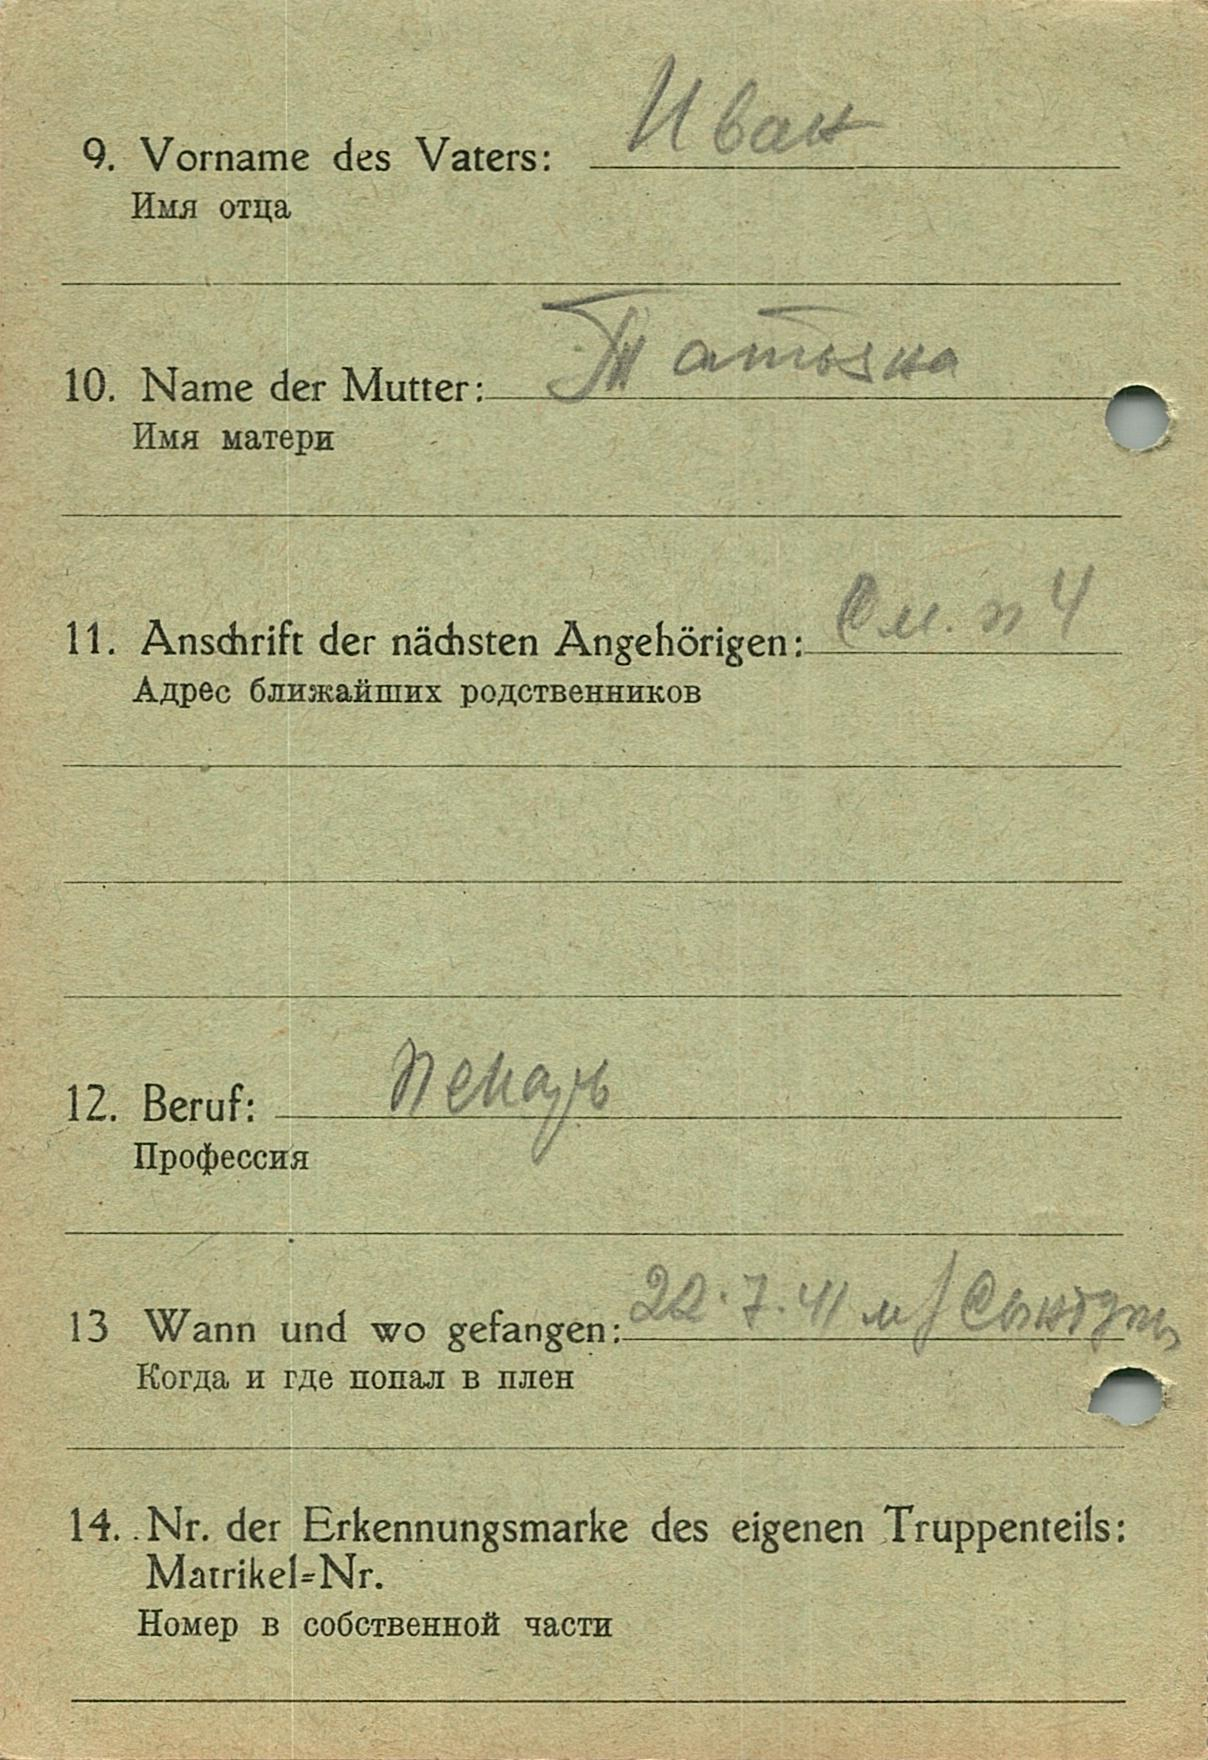 9. Vorname des Vaters: Иван
Имя отца
10. Name der Mutter: Татьяна
Имя матери
11. Anschrift der nächsten Angehörigen: См. п 4
Адрес ближайших родственников
12. Beruf: пекарь
Профессия
13 Wann und wo gefangen: 22.7.41 м/
Когда и где попал в плен
14. Nr. der Erkennungsmarke des eigenen Truppenteils:
Matrikel=Nr.
Номер в собственной части